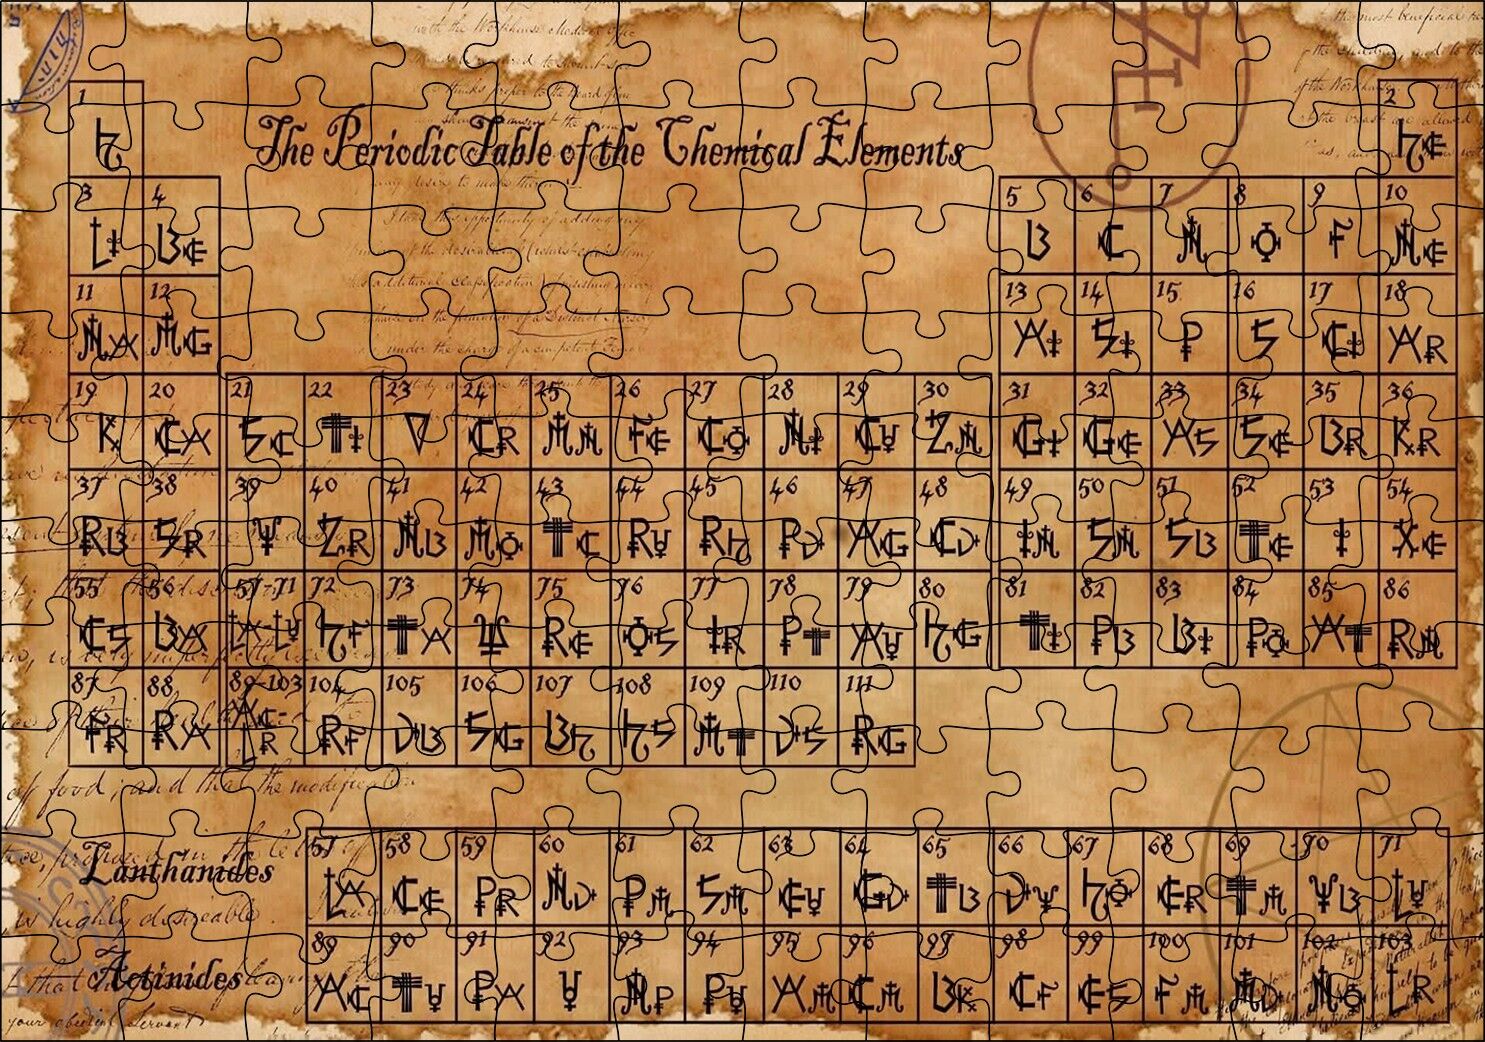 The Periodic Table of the Chemical Elements
1 2
H He
3 4 5 6 7 8 9 10
Li Be B C N O F Ne
11 12 13 14 15 16 17 18
Na Mg Al Si P S Cl Ar
19 20 21 22 23 24 25 26 27 28 29 30 31 32 33 34 35 36
K Ca Sc Ti V Cr Mn Fe Co Ni Cu Zn Ga Ge As Se Br Kr
37 38 39 40 41 42 43 44 45 46 47 48 49 50 51 52 53 54
Rb Sr Y Zr Nb Mo Tc Ru Rh Pd Ag Cd In Sn Sb Te I Xe
55 56 57-71 72 73 74 75 76 77 78 79 80 81 82 83 84 85 86
Cs Ba La-Lu Hf Ta W Re Os Ir Pt Au Hg Tl Pb Bi Po At Rn
87 88 89-103 104 105 106 107 108 109 110 111
Fr Ra Ac-Lr Rf Db Sg Bh Hs Mt Ds Rg
of food; and that the modification
Lanthanides
57 58 59 60 61 62 63 64 65 66 67 68 69 70 71
La Ce Pr Nd Pm Sm Eu Gd Tb Dy Ho Er Tm Yb Lu
is highly desireable.
Actinides
89 90 91 92 93 94 95 96 97 98 99 100 101 102 103
Ac Th Pa U Np Pu Am Cm Bk Cf Es Fm Md No Lr
your obedient Servant